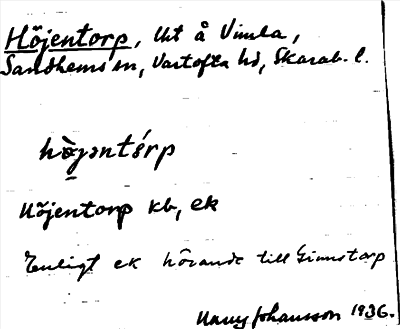 Höjentorp, Uht å Vimla,
Sandhems sn, Vartofta hd, Skarab. l.
hὸ̱jəntórp
Höjentorp kb, ek
Enligt ek hörande till Grimstorp
Harry Johansson 1936.